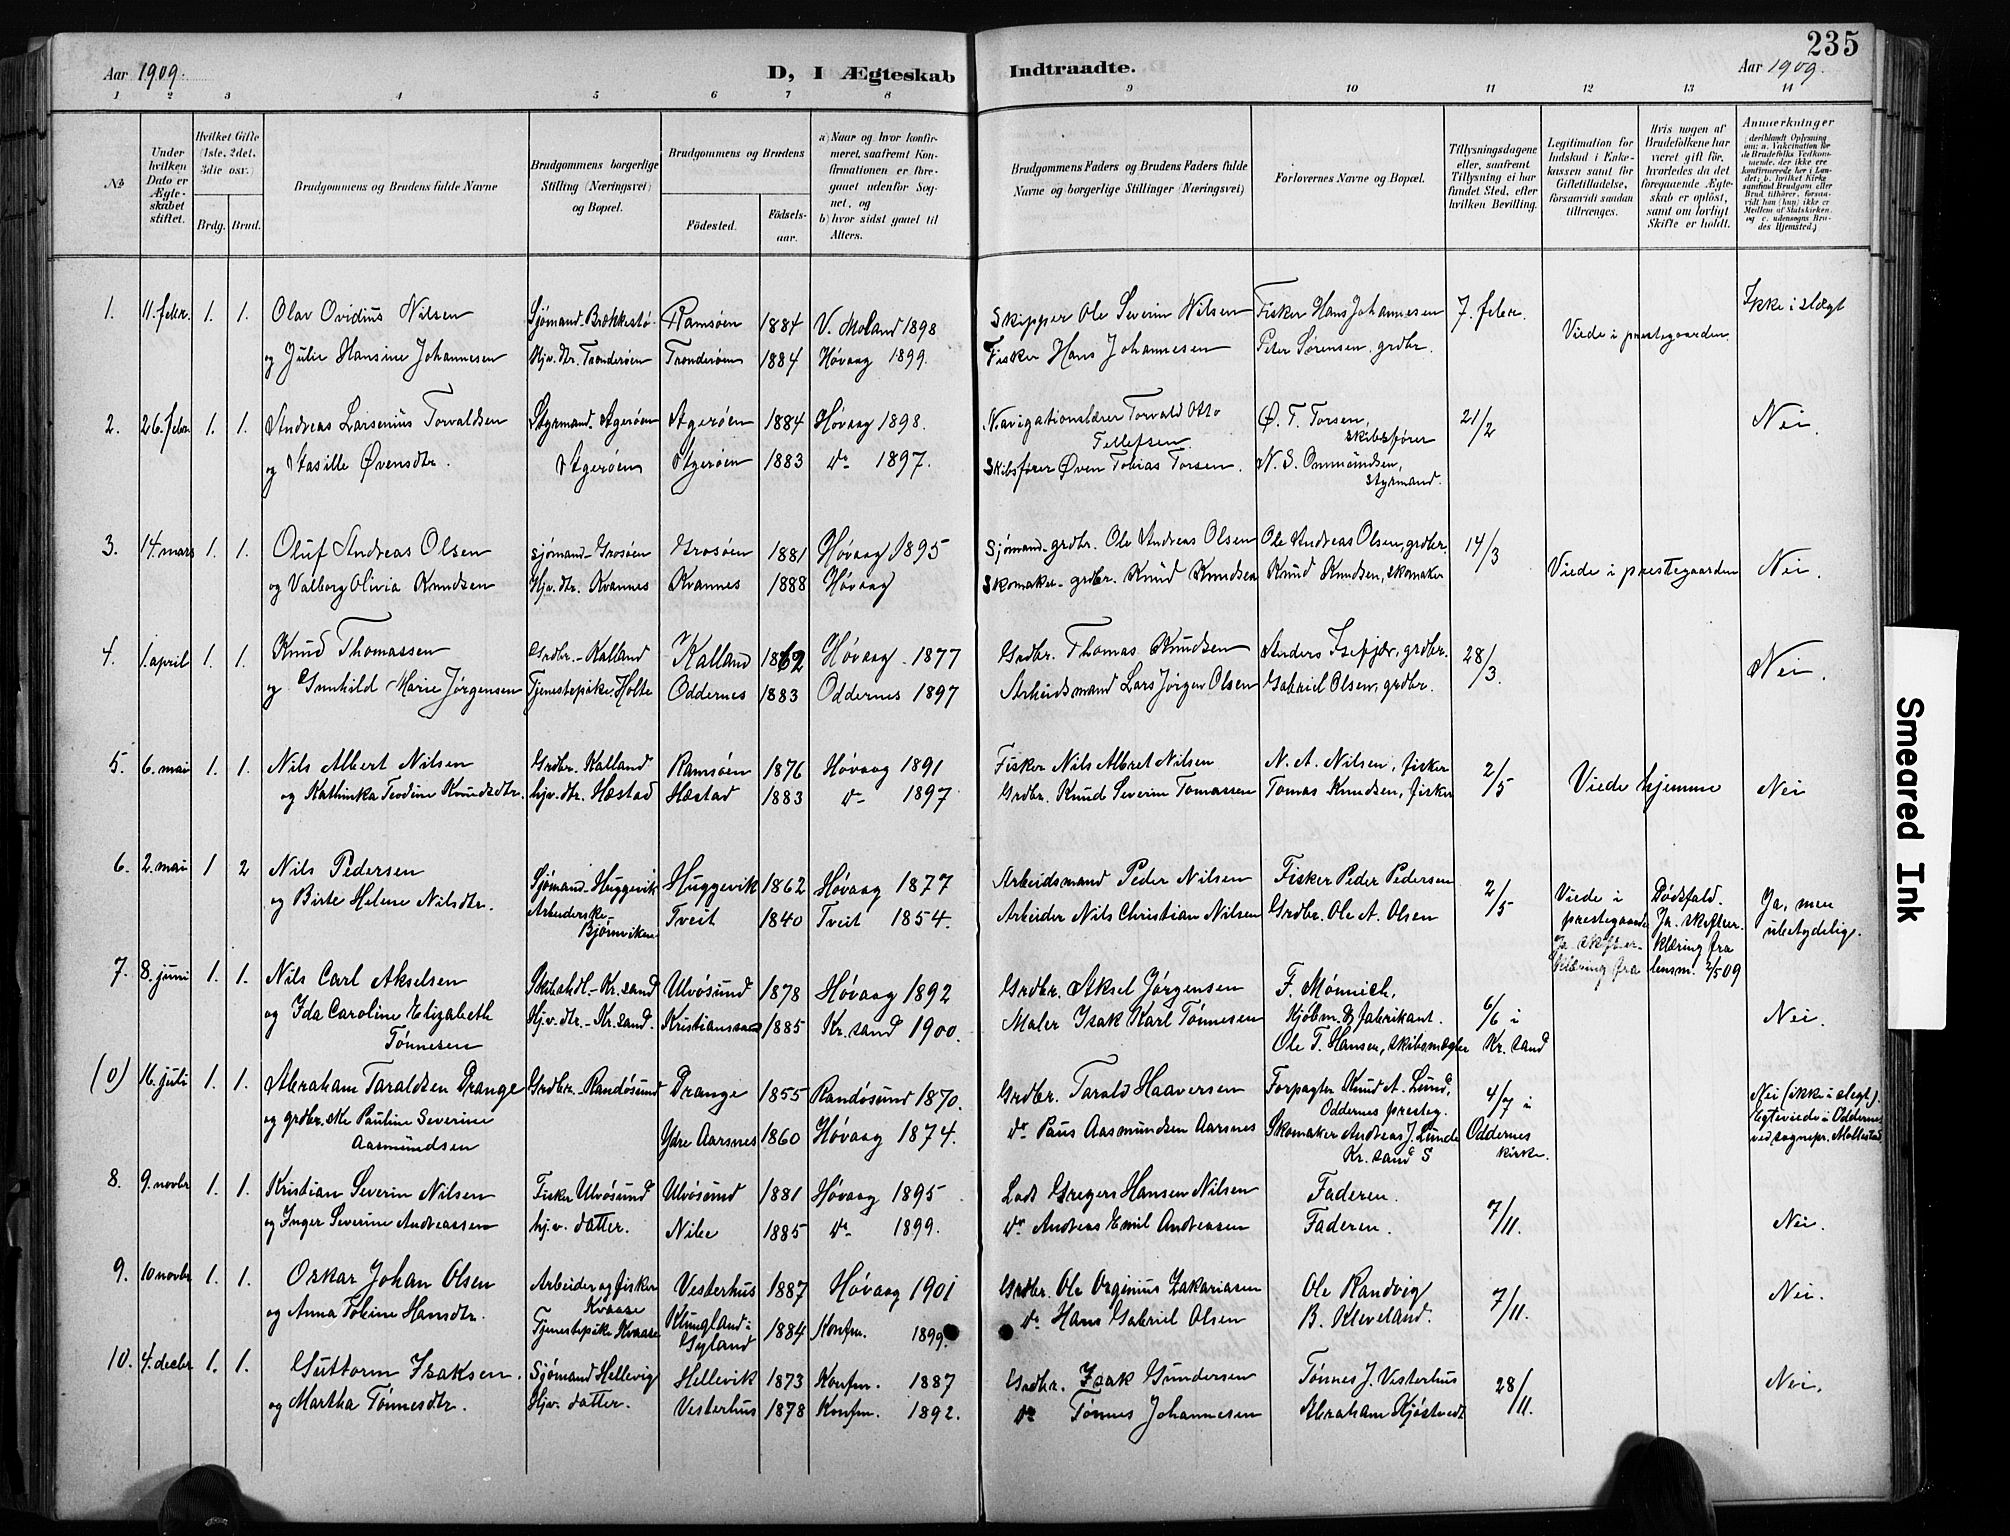 235
Aar 1909.
D, I Ægteskab Indtraadte.
Aar 1909.
1 2 3 4 5 6 7 8 9 10 11 12 13 14
№
Under hvilken Dato er Ægteskabet stiftet.
Hvilket Gifte (1ste, 2det, 3die osv.)
Brdg. Brud.
Brudgommens og Brudens fulde Navne
Brudgommens borgerlige Stilling (Næringsvei) og Bopæl.
Brudgommens og Brudens
Fødested.
Fødselsaar.
a) Naar og hvor konfirmeret, saafremt Konfirmationen er foregaaet udenfor Sognet, og
b) hvor sidst gaaet til Alters.
Brudgommens Faders og Brudens Faders fulde Navne og borgerlige Stillinger (Næringsvei)
Forlovernes Navne og Bopæl.
Tillysningsdagene eller, saafremt Tillysning ei har fundet Sted, efter hvilken Bevilling.
Legitimation for Indskud i Enkekassen samt for Giftetilladelse, forsaavidt saadan tiltrænges.
Hvis nogen af Brudefolkene har været gift før, hvorledes da det foregaaende Ægteskab er opløst, samt om lovligt Skifte er holdt.
Anmerkninger (deriblandt Oplysning om: a. Vakcination for de Brudefolks Vedkommende, der ikke ere konfirmerede her i Landet; b. hvilket Kirkesamfund Brudgom eller Brud tilhører, forsaavidt han (hun) ikke er Medlem af Statskirken, og c. udensogns Brudes Hjemsted.)
1. 11. febr. 1. 1. Olav Ovidius Nilsen Sjømand Brækkestø Ramsøen 1884 V. Moland 1898 Skipper Ole Severin Nilsen Fisker Hans Johannesen 7. febr. Viede i prestegaarden. Ikke i slægt
og Julie Hansine Johannesen Hjv. dtr. Trønderøen Trønderøen 1884 Høvaag 1899. Fisker Hans Johannesen Peter Sørensen, grdbr.
2. 26. febr. 1. 1. Andreas Larsenius Torvaldsen Styrmand. Agerøen Agerøen 1884 Høvaag 1898. Navigationslærer Torvald Otto Tellefsen Ø. T. Torsen, skibsfører 21/2 Nei.
og Aasille Øvensdtr. Agerøen Agerøen 1883 do 1897. Skibsfører Øven Tobias Torsen. N. S. Onmundsen, styrmand.
3. 14. mars 1. 1. Oluf Andreas Olsen sjømand-Grosøen Grosøen 1881 Høvaag 1895 Sjømand-grdbr. Ole Andreas Olsen Ole Andreas Olsen, grdbr. 14/3 Viede i prestegaarden Nei.
og Valborg Olivia Knudsen Hjv. dtr. Kvannes Kvannes 1888 Høvaag Skomaker-grdbr. Knud Knudsen Knud Knudsen, skomaker
4. 1. april 1. 1. Knud Thomassen Grdbr.-Kalland Kalland 1862 Høvaag 1877 Grdbr. Thomas Knudsen Anders Isefjær, grdbr. 28/3. Nei.
og Gunhild Marie Jørgensen Tjenestepike, Holte Oddernes 1883 Oddernes 1897 Arbeidsmand Lars Jørgen Olsen Gabriel Olsen, grdbr.
5. 6. mai 1. 1. Nils Albert Nilsen Grdbr. Kalland Ramsøen 1876 Høvaag 1891 Fisker Nils Albret Nilsen N. A. Nilsen, fisker 2/5 Viede hjemme Nei
og Kathinka Teodine Knudsdtr. hjv. dtr. Hæstad Hæstad 1883 do 1897 Grdbr. Knud Severin Tomassen Tomas Knudsen, fisker
6. 2. mai 1 2 Nils Pedersen Sjømand-Huggevik Huggevik 1862 Høvaag 1877 Arbeidsmand Peder Nilsen Fisker Peder Pedersen 2/5 Viede i prestegaarden Dødsfald. Ja, men ubetydelig.
og Birte Helene Nilsdtr. Arbeiderske- Bjørnviken Tveit 1840 Tveit 1854. Arbeider Nils Christian Nilsen Grdbr. Ole A. Olsen Ja. skifteerklæring fra Ja. skifteerklæring fra lensm. 2/5 09
7. 8. juni 1. 1. Nils Carl Akselsen Skibshdl.-Kr.sand Ulvøsund 1878 Høvaag 1892 Grdbr. Aksel Jørgensen F. Mönnich, Kjøbm. & fabrikant. 6/6 i Kr. sand Nei.
og Ida Caroline Elizabeth Tønnesen Hjv. dtr.-Kr.sand. Kristianssand 1885 Kr.sand 1900. Maler Isak Karl Tønnesen Ole T. Hansen, skibsmægler
(0) 16. juli 1. 1. Abraham Taraldsen Drange Grdbr. Randøsund Drange 1855 Randøsund 1870. Grdbr. Tarald Haaversen Forpagter Knud A. Lund, Oddernes presteg. 4/7 i Oddernes kirke. Nei (ikke i slegt). Egteviede i Oddernes ved sognepr. Møllestad
og grdbr.ske Pauline Severine Aasmundsen Ydre Aarsnes 1860 Høvaag 1874. do Paus Aasmundsen Aarsnes Skomaker Andreas J. Lunde Kr. sand S
8. 9. novbr 1. 1. Kristian Severin Nilsen Fisker Ulvøsund Ulvøsund 1881 Høvaag 1895 Lods Gregers Hansen Nilsen Faderen. 7/11. Nei.
og Inger Severine Andreassen hj.v. datter. Nibe 1885 do 1899. do Andreas Emil Andreasen Faderen.
9. 10 novbr 1. 1. Oskar Johan Olsen Arbeider og fisker Kvaase Vesterhus 1887 Høvaag 1901 Grdbr. Ole Orginius Zakariasen Ole Randvig 7/11. Nei.
og Anna Tobine Hansdtr. Tjenestepike Kvaase Klungland i Gyland 1884 Konfm. 1899. do Hans Gabriel Olsen B. Kleveland.
10. 4. decbr 1. 1. Guttorm Isaksen. Sjømand Hellevig Hellevik 1873 Konfm. 1887 Grdbr. Isak Gundersen Tønnes J. Vesterhus 28/11. Nei.
og Martha Tønnesdtr. Hjv. datter. Vesterhus 1878 Konfm. 1892. do Tønnes Johannesen Abraham Hjøstvedt
Smeared Ink